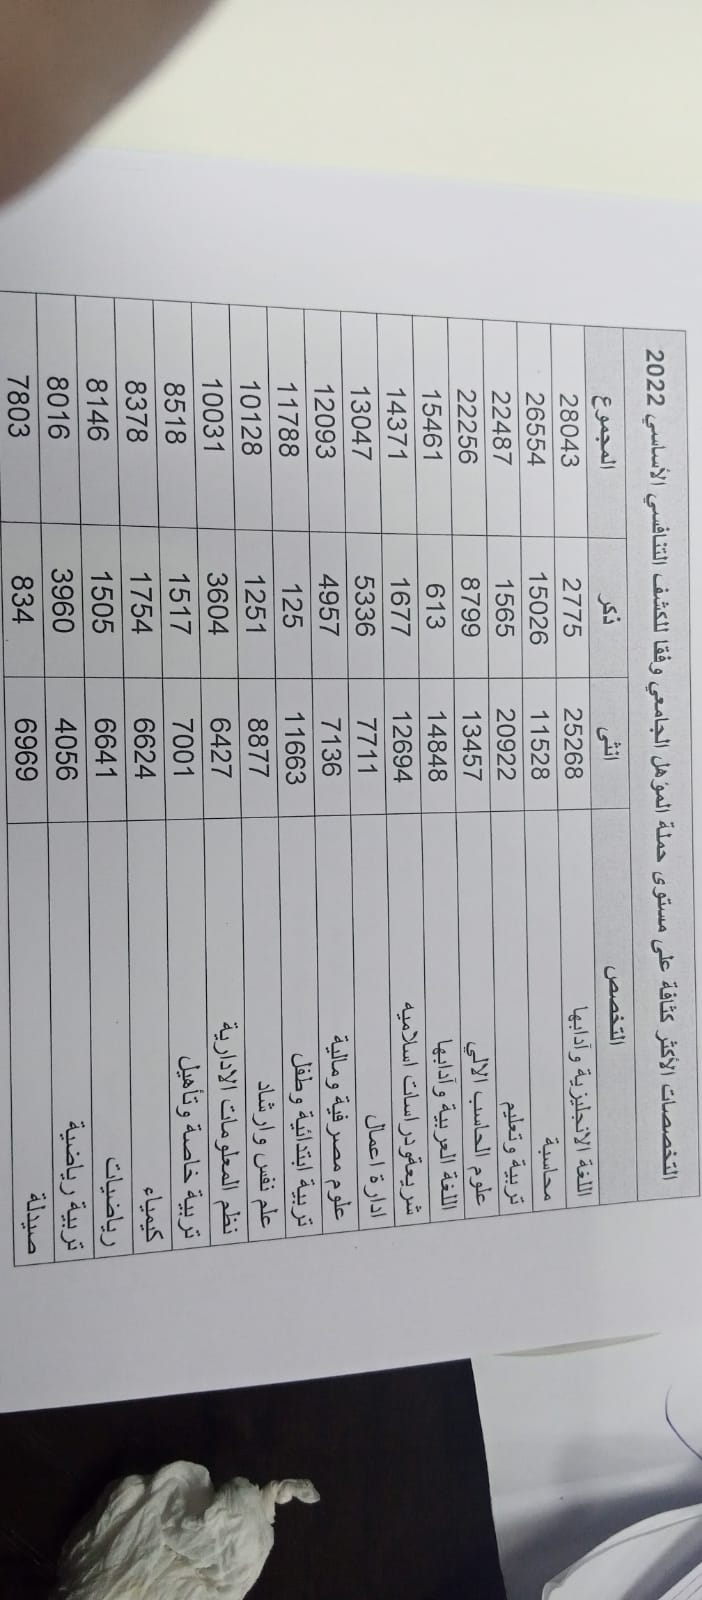 التخصصات الأكثر كثافة على مستوى حملة المؤهل الجامعي وفقا للكشف التنافسي الأساسي 2022
التخصص انثى ذكر المجموع
اللغة الانجليزية وآدابها 25268 2775 28043
محاسبة 11528 15026 26554
تربية وتعليم 20922 1565 22487
علوم الحاسب الالي 13457 8799 22256
اللغة العربية وآدابها 14848 613 15461
شريعةودراسات اسلاميه 12694 1677 14371
ادارة اعمال 7711 5336 13047
علوم مصرفية ومالية 7136 4957 12093
تربية ابتدائية وطفل 11663 125 11788
علم نفس وارشاد 8877 1251 10128
نظم المعلومات الادارية 6427 3604 10031
تربية خاصة وتأهيل 7001 1517 8518
كيمياء 6624 1754 8378
رياضيات 6641 1505 8146
تربية رياضية 4056 3960 8016
صيدلة 6969 834 7803